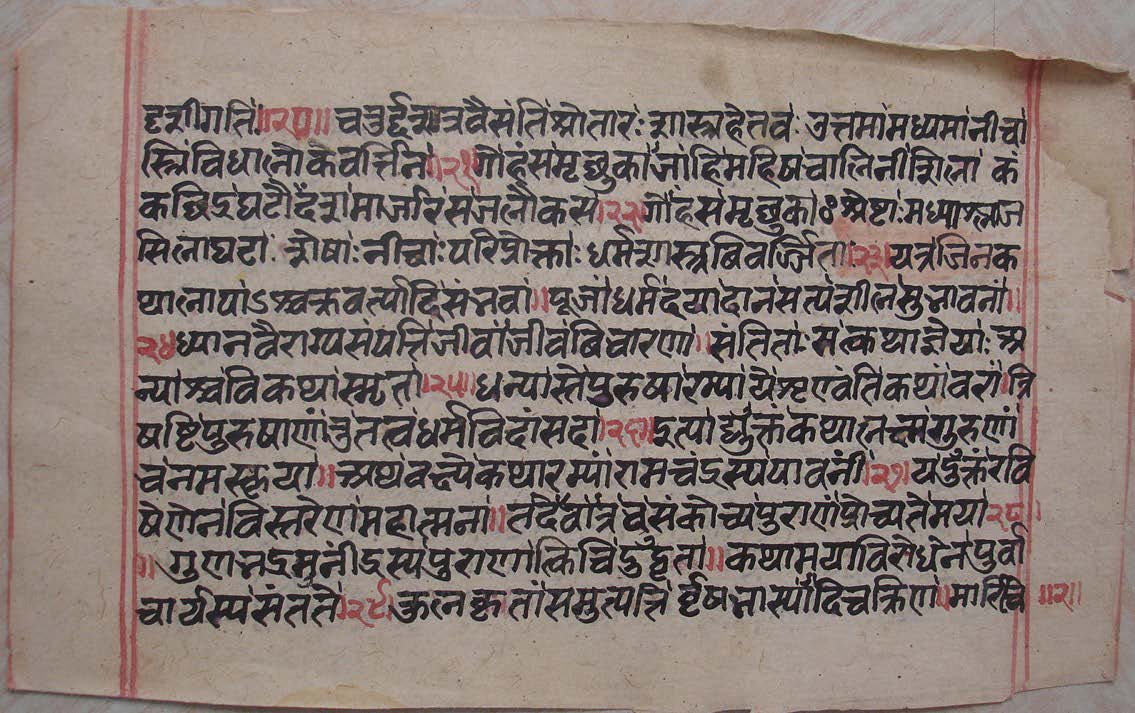 दृशीगति॥२०॥ चतुर्द्दशात्रवैसंतिश्रोतारः शास्त्रहेतवः उत्तमामध्यमानीचा
स्त्रिविधालोकवर्त्तिनः॥२१॥गोहंसमृच्छुकाजाहिमहिषचालिनीशिला कं
कच्छिद्रघटौदंशमार्जारसजलौकस॥२२॥गोहंसमृच्छुकाः श्रेष्टाःमध्याश्चाज
सिलाघटा शेषाःनीचाःपरिप्रोक्ताःधर्मशास्त्रविवर्ज्जिता॥२३॥यत्रजिनक
थालापाऽश्चक्रवर्त्यादिसंभवा॥पूजाधर्मदयादानसत्यशीलसुभावना॥
२४ध्यानवैराग्यसंपत्तिजीवाजीवविचारणा॥संतिताःसत्कथाज्ञेयाःअ
न्याश्चविकथास्मृता॥२५॥धन्यास्तेपुरुषारम्यायेशृण्वंतिकथांवरां॥त्रि
षष्टिपुरुषाणांतुतत्वधर्मविदांसदा॥२६॥इत्याद्युक्तंकथालक्ष्मगुरुणां
चनमस्कृया॥अथवक्ष्येकथारम्यांरामचंद्रस्यपावनीं॥२७॥यदुक्तंरवि
षेणेनविस्तरेणमहात्मना॥तदेवात्रवसंकोच्यपुराणंप्रोच्यतेमया॥२८॥
॥गुणभद्रमुनींद्रस्यपुराणात्किंचिदुद्धृता॥कथामयाविरोधेनपुर्वा
चार्यस्यसंततै॥२९॥कुलकृतांसमुत्पत्ति र्वृषभास्यादिचक्रिणः॥मारीचि ॥२॥